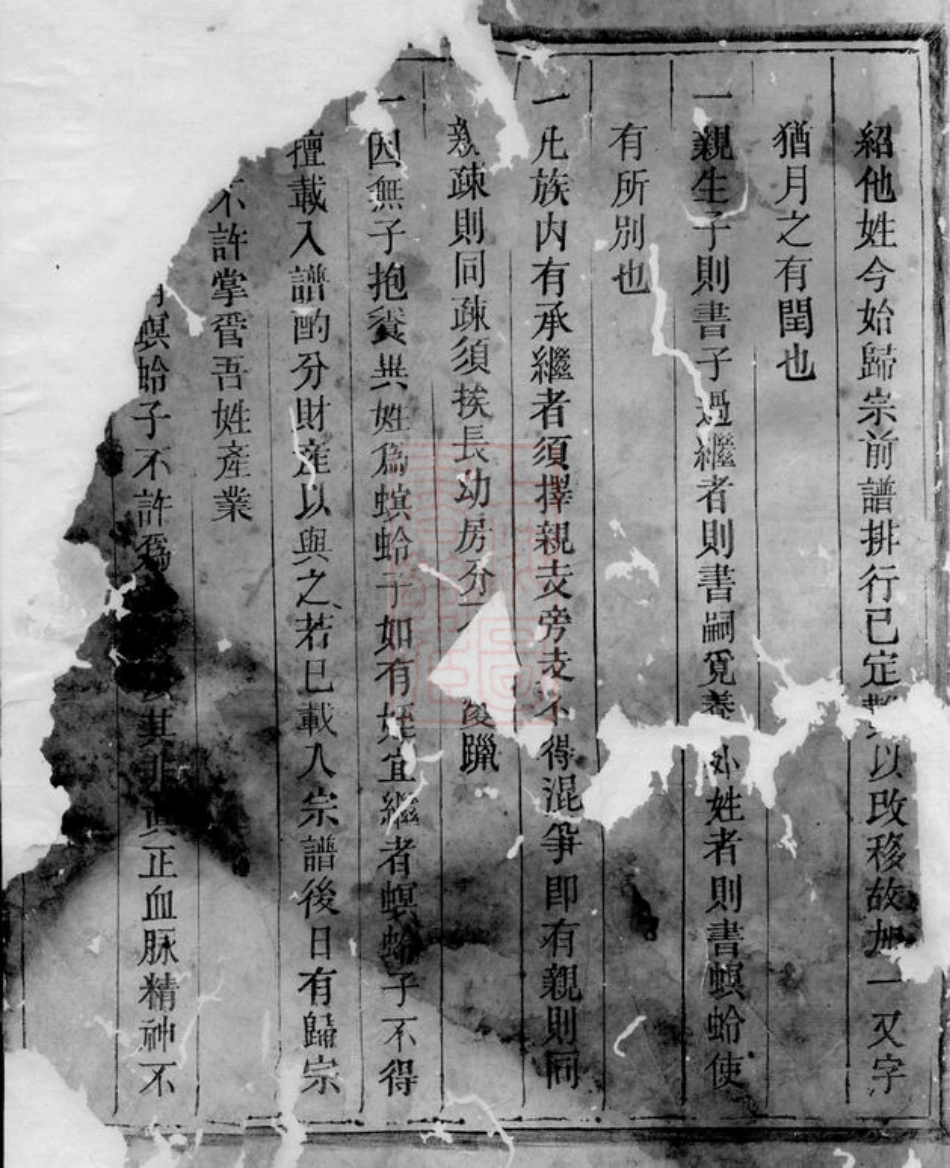 紹他姓今始歸宗前譜排行已定難以改移故加一又字
猶月之有閏也
一親生子則書子過繼者則書嗣覓養外姓者則書螟蛉使
有所別也
一凡族内有承繼者須擇親支旁支不得混爭即有親則同
親疎則同疎須挨長幼房分後躐
一因無子抱養異姓爲螟蛉子如有姪宜繼者螟蛉子不得
擅載入譜酌分財產以與之若已載入宗譜後日有歸宗
不許掌管吾姓產業
螟蛉子不許爲其非眞正血脉精神不